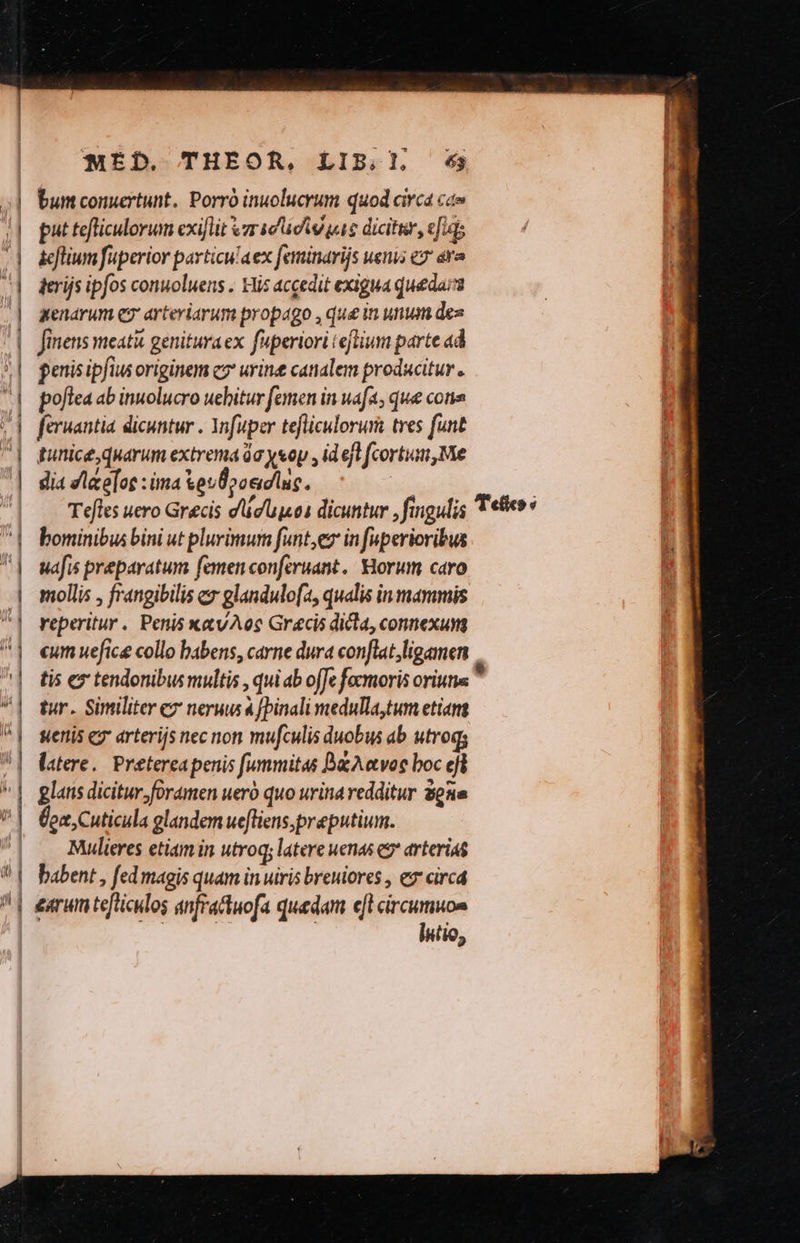 MED. THEOR. LIB. I. 63
bum conuertunt. Porrò inuolucrum quod circa ca=
put teſticulorum exiſtit ἐπιδιδυμὶς dicitur, eſtq;
teſtium ſuperior particula ex ſeminarijs uenis & ar=
terijs ipſos conuoluens. His accedit exigua quædam
uenarum & arteriarum propago, quæ in unum de=
ſinens meatū genitura ex ſuperiori teſtium parte ad
penis ipſius originem & urinæ canalem producitur.
poſtea ab inuolucro uehitur ſemen in uaſa, quæ con=
ſeruantia dicuntur. Inſuper teſticulorum tres ſunt
tunicæ, quarum extrema ὄσχεον, id eſt ſcortum, Me
dia δαρτος: ima ἐρυθροειδής.
Teſtes uero Græcis δίδυμοι dicuntur, ſingulis
Teſtes
hominibus bini ut plurimum ſunt, & in ſuperioribus
uaſis præparatum ſemen conſeruant. Horum caro
mollis, frangibilis & glanduloſa, qualis in mammis
reperitur. Penis καυλὸς Græcis dicta, connexum
cum ueſicæ collo habens, carne dura conflat, ligamen
tis & tendonibus multis, qui ab oſſe fœmoris oriun=
tur. Similiter & neruus à ſpinali medulla, tum etiam
uenis & arterijs nec non muſculis duobus ab utroq;
latere. Præterea penis ſummitas βάλανος hoc eſt
glans dicitur, foramen uerò quo urina redditur
Cuticula glandem ueſtiens, præputium.
Mulieres etiam in utroq; latere uenas & arterias
habent, ſed magis quam in uiris breuiores, & circa
earum teſticulos anfractuoſa quædam eſt circumuo=
lutio,